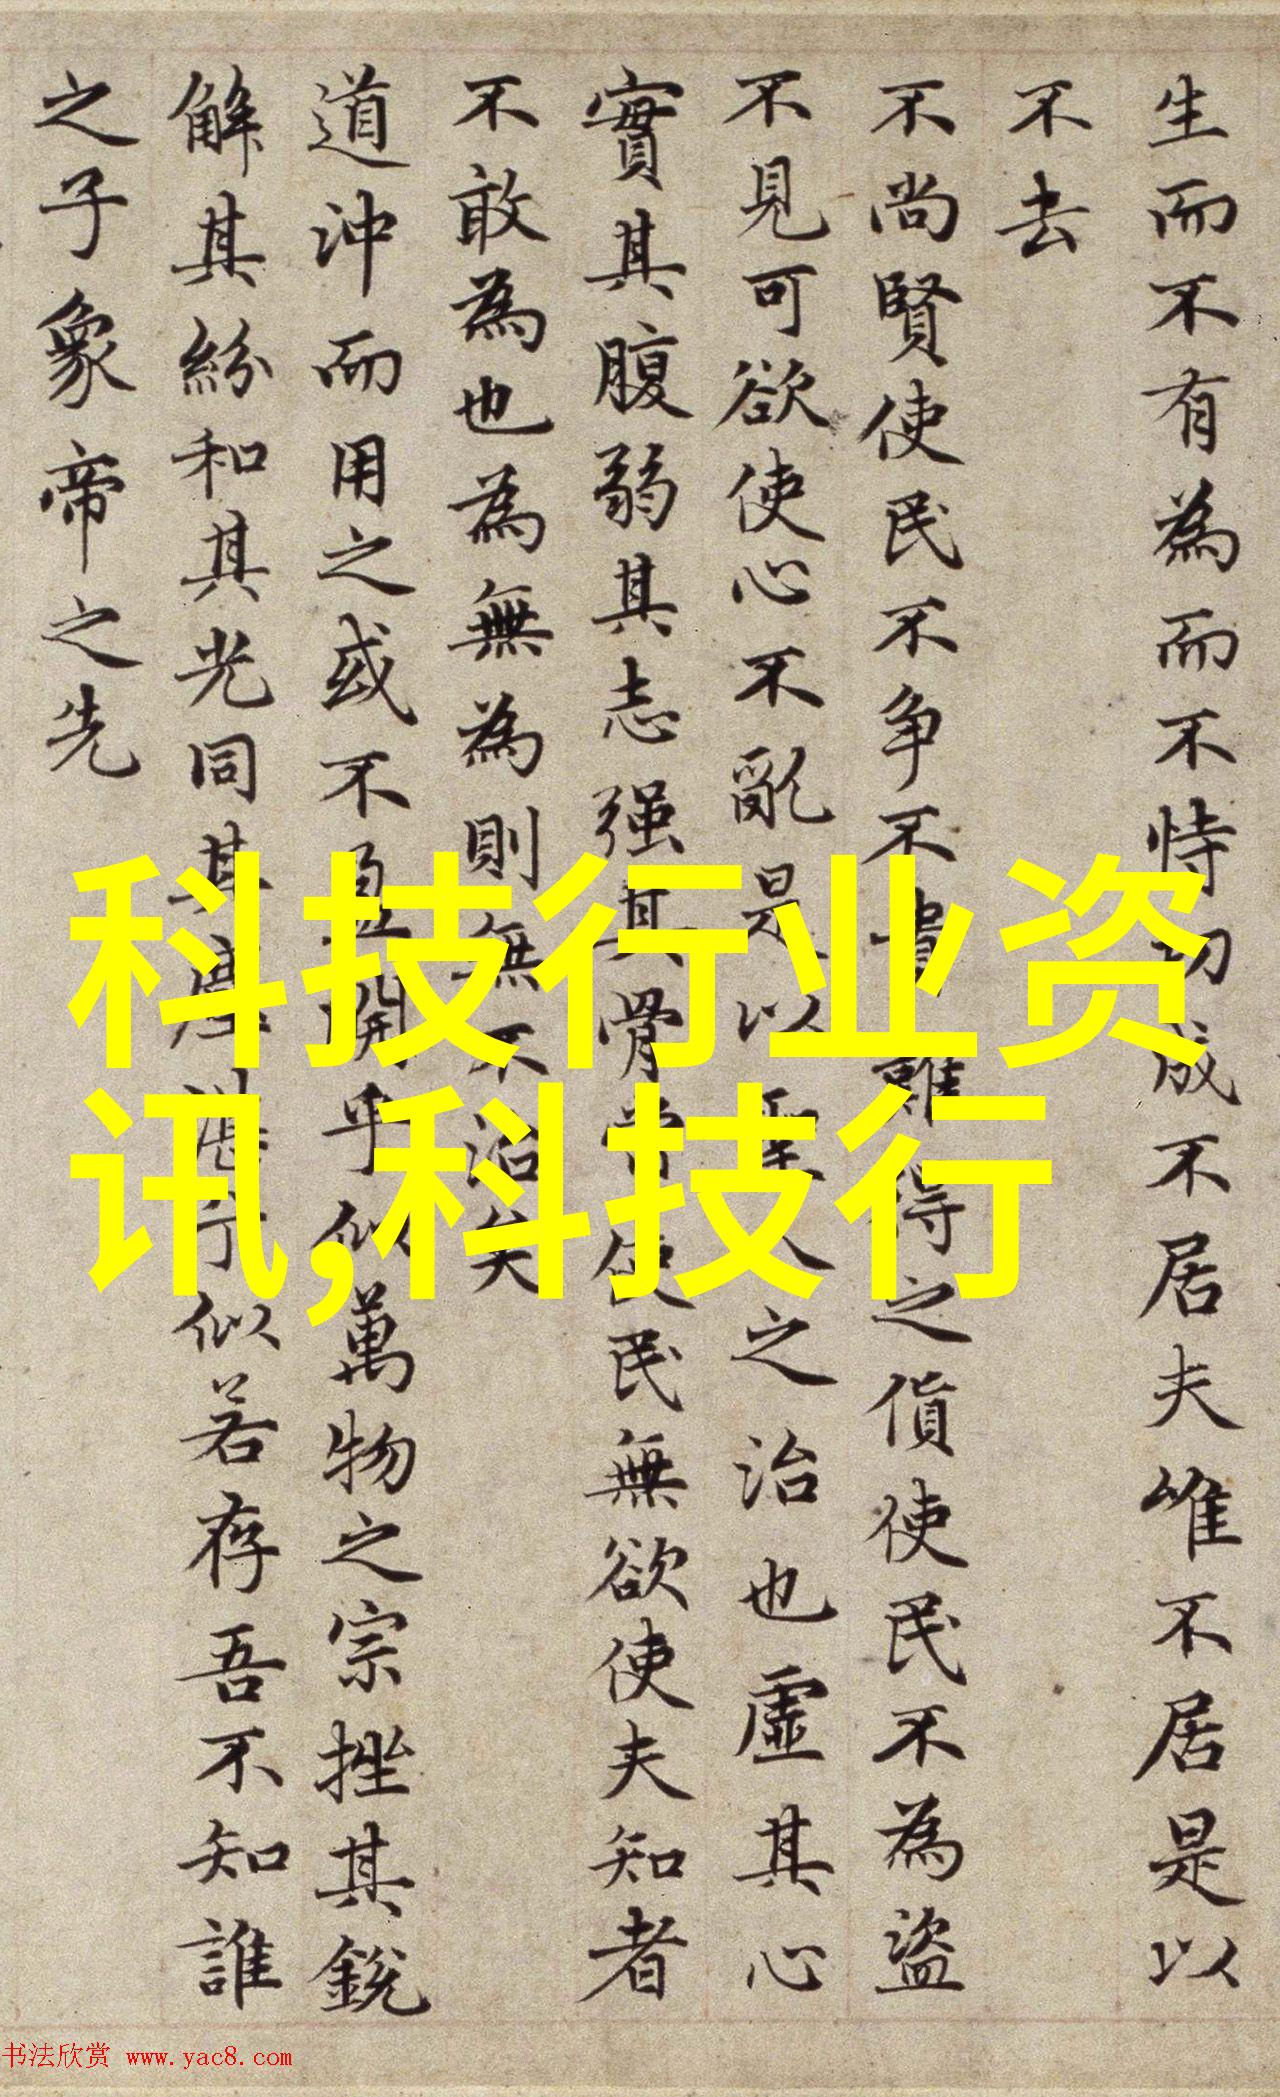 生而不有為而不恃功成不居夫唯不居是以
不去
不尚賢使民不争不貴難得之貨使民不為盜
不見可欲使心不亂是以聖人之治也虛其心
實其腹弱其志强其骨常使民無欲使夫知者
不敢為也為無為則無不治矣
道沖而用之或不盈淵乎似萬物之宗挫其銳
解其紛和其光同其塵湛兮似若存吾不知誰
之子象帝之先
科技行业资
讯,科技行
书法欣赏 www.yac8.com